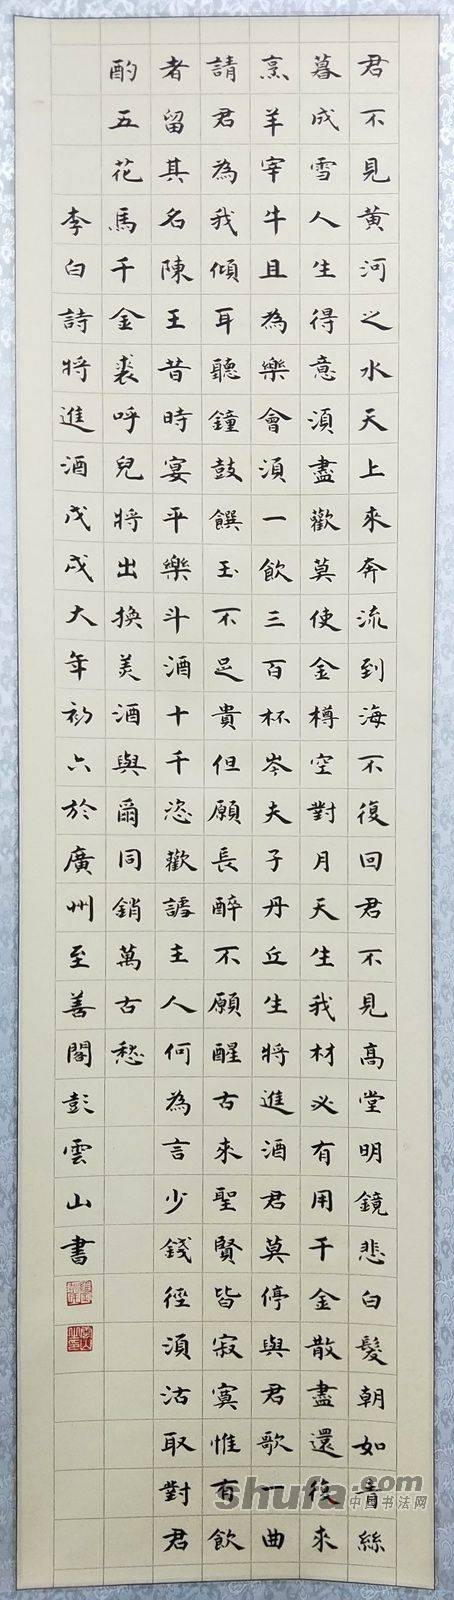 君不見黃河之水天上來奔流到海不復回君不見高堂明鏡悲白髮朝如青絲
暮成雪人生得意須盡歡莫使金樽空對月天生我材必有用千金散盡還復來
烹羊宰牛且為樂會須一飲三百杯岑夫子丹丘生將進酒君莫停與君歌一曲
請君為我傾耳聽鐘鼓饌玉不足貴但願長醉不願醒古來聖賢皆寂寞惟有飲
者留其名陳王昔時宴平樂斗酒十千恣歡謔主人何為言少錢徑須沽取對君
酌五花馬千金裘呼兒將出換美酒與爾同銷萬古愁
李白詩將進酒戊戌大年初六於廣州至善閣彭雲山書
shufa.com
中国书法网